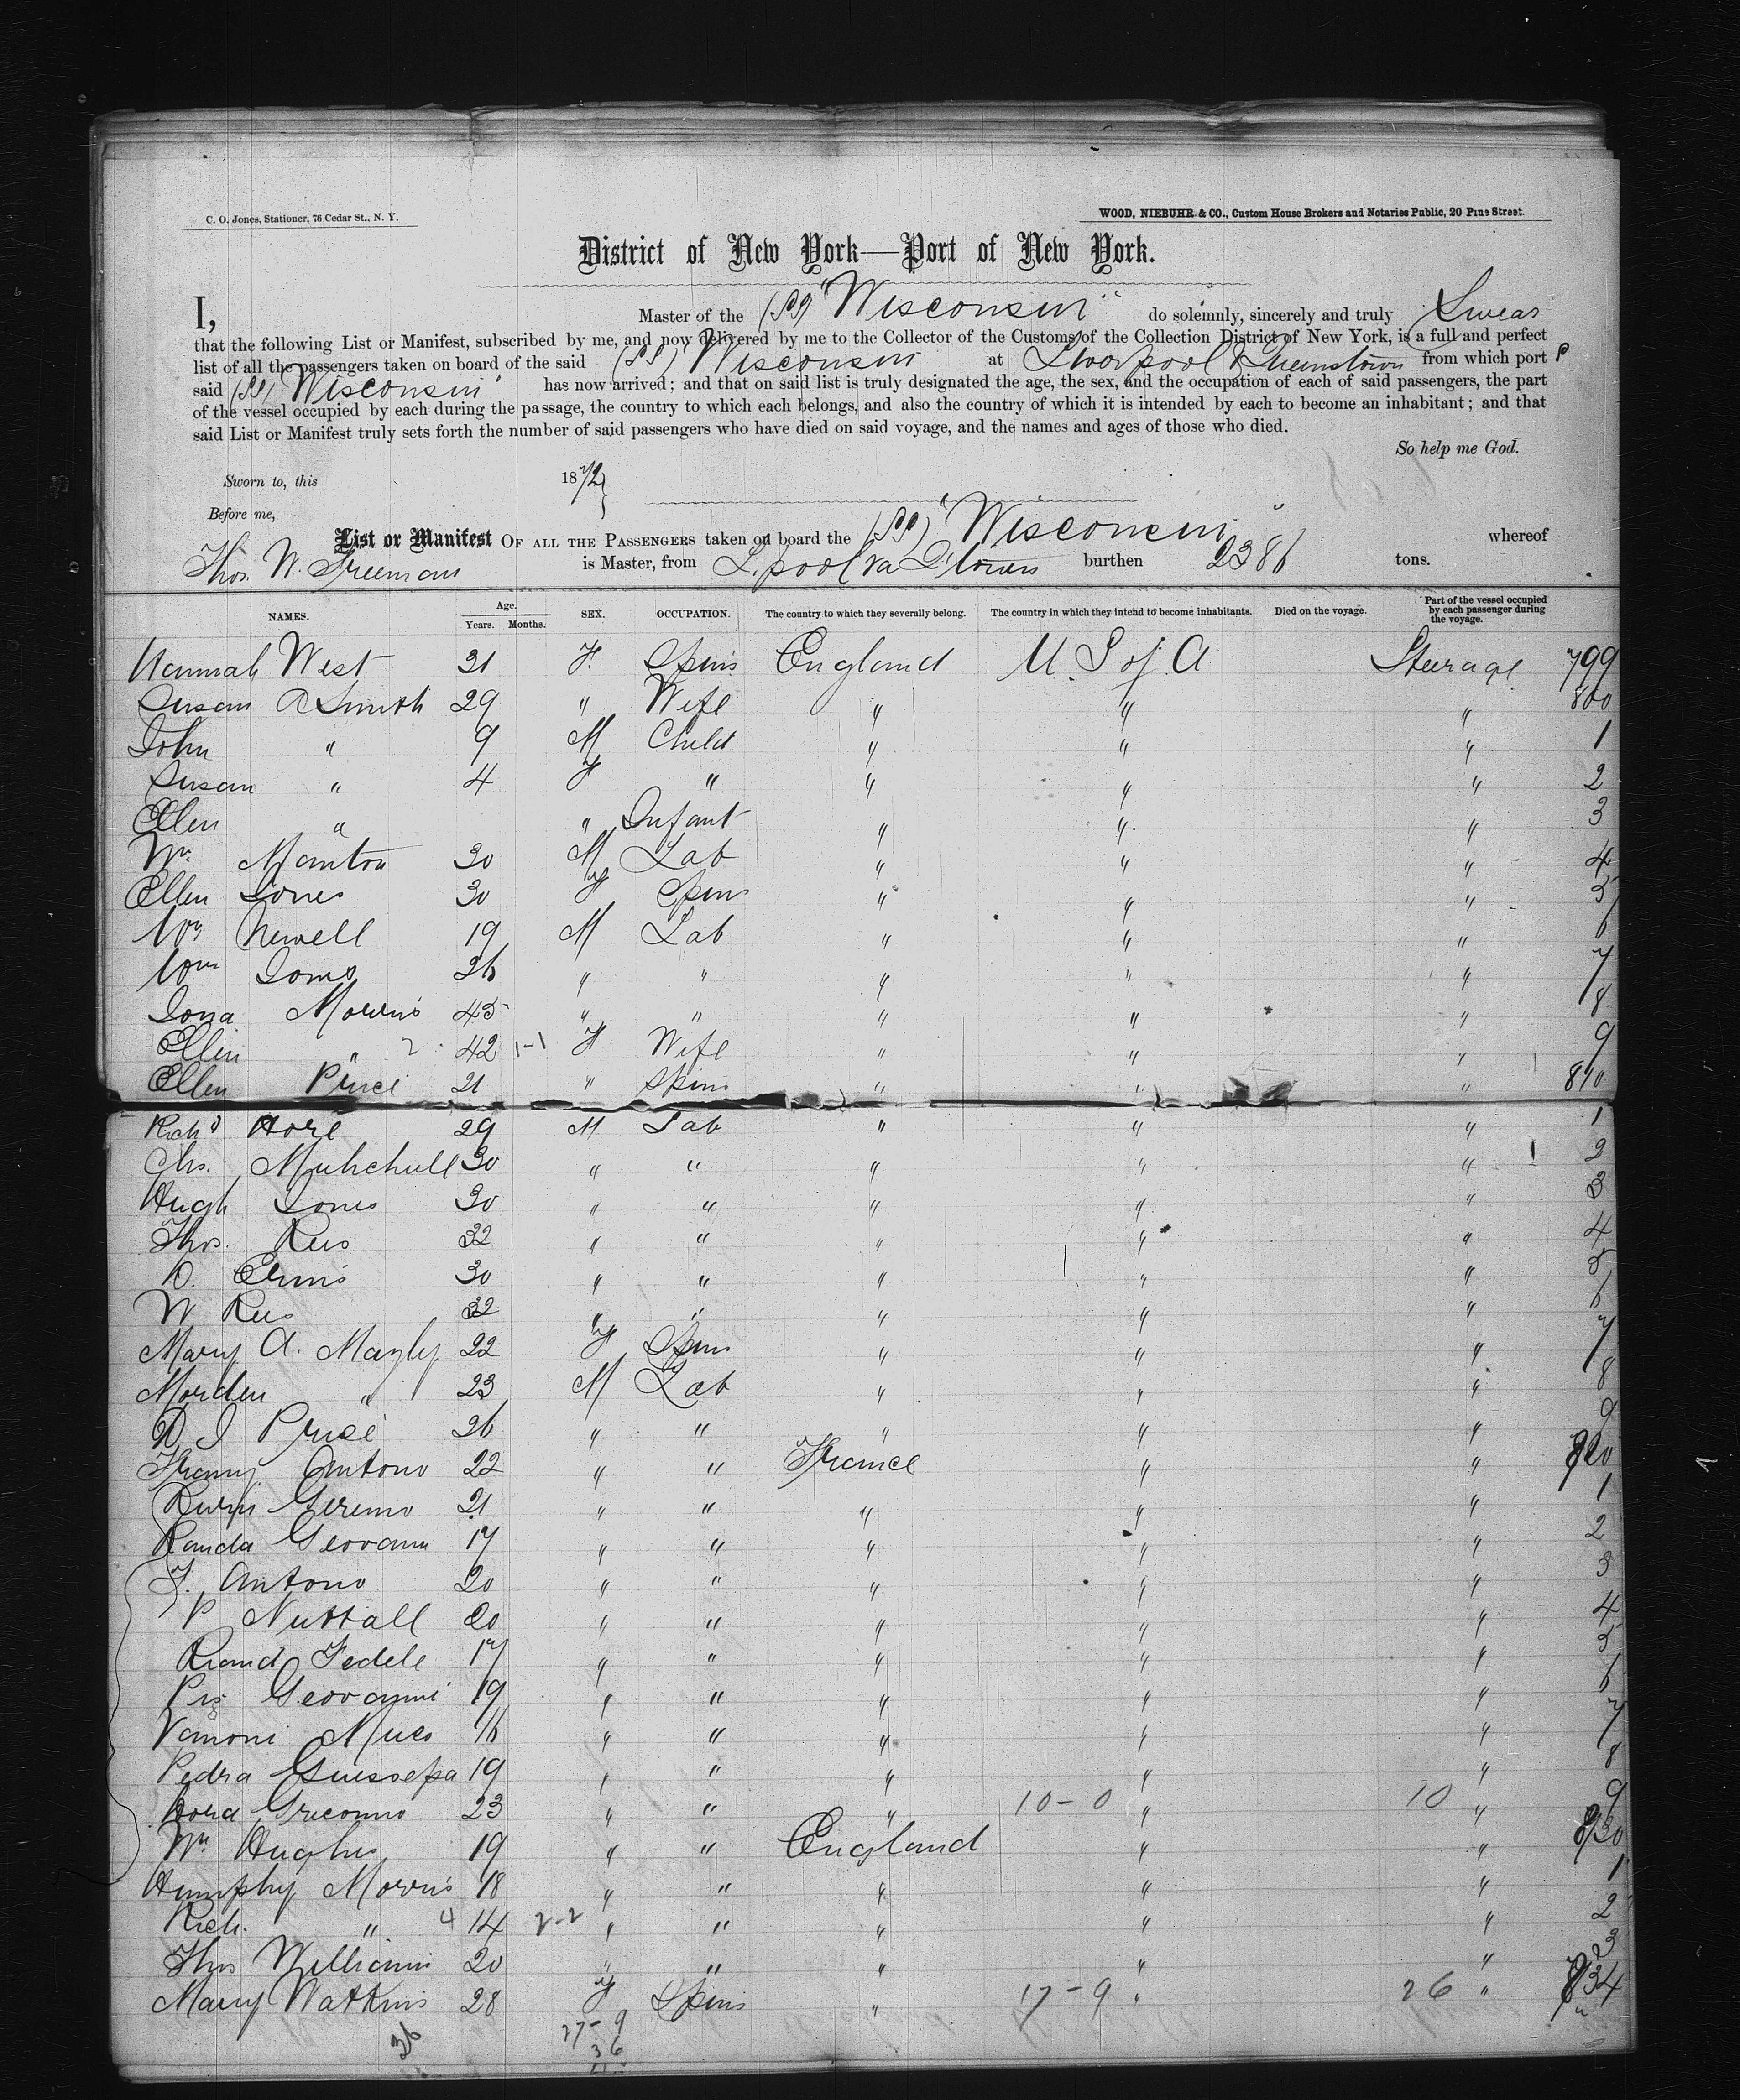 C. O. Jones, Stationer, 76 Cedar St., N. Y.
WOOD, NIEBUHR & CO., Custom House Brokers and Notaries Public, 20 Pine Street.
District of New York—Port of New York.
I, Master of the (SS) "Wisconsin" do solemnly, sincerely and truly Swear
that the following List or Manifest, subscribed by me, and now delivered by me to the Collector of the Customs of the Collection District of New York, is a full and perfect
list of all the passengers taken on board of the said (SS) Wisconsin at Liverpool & Queenstown from which port s
said (SS) Wisconsin" has now arrived; and that on said list is truly designated the age, the sex, and the occupation of each of said passengers, the part
of the vessel occupied by each during the passage, the country to which each belongs, and also the country of which it is intended by each to become an inhabitant; and that
said List or Manifest truly sets forth the number of said passengers who have died on said voyage, and the names and ages of those who died.
So help me God.
Sworn to, this 1872
Before me,
List or Manifest OF ALL THE PASSENGERS taken on board the (SS) "Wisconsin" whereof
Thos. W. Freeman is Master, from L.pool via Q'town burthen 2386 tons.
NAMES. Age. Years. Months. SEX. OCCUPATION. The country to which they severally belong. The country in which they intend to become inhabitants. Died on the voyage. Part of the vessel occupied by each passenger during the voyage.
Hannah West 31 F. Spins England U. S of A Steerage 799
Susan A Smith 29 " Wife " " " 800
John " 9 M Child " " " 1
Susan " 4 F " " " " 2
Ellen " " Infant " " " 3
Wm Manton 30 M Lab " " " 4
Ellen Jones 30 F Spins " " " 5
Wm Newell 19 M Lab " " " 6
Wm Jones 26 " " " " " 7
Morris 45 " " " " " 8
Ellen " 2 42 1-1 F Wife " " " 9
Ellen Price 21 " Spins " " " 810
Richd Hore 29 M Lab " " " 1
Chs. Mitchell 30 " " " " " 2
Hugh Jones 30 " " " " " 3
Thos. Rees 32 " " " " " 4
D. Evans 30 " " " " " 5
W Rees 32 " " " " " 6
Mary A. Mazly 22 F Spins " " " 7
Morden " 23 M Lab " " " 8
D J Price 26 " " " " " 9
Antono 22 " " France " " 820
Geremo 21 " " " " " 1
Randa Geovani 17 " " " " " 2
F. Antono 20 " " " " " 3
P Nuttall 20 " " " " " 4
Riand Fedele 17 " " " " " 5
Geovanni 19 " " " " " 6
Vanoni 16 " " " " " 7
Pedra Guessepa 19 " " " " " 8
Dora Gricomo 23 " " " 10-0 " 10 " 9
Wm Hughes 19 " " England " " 830
Humphy Morris 18 " " " " " 1
Rich. " 4 14 2-2 " " " " " 2
Thos Williams 20 " " " " " 3
Mary Watkins 28 F Spins " 17-9 " 26 " 834
36 27-9
36